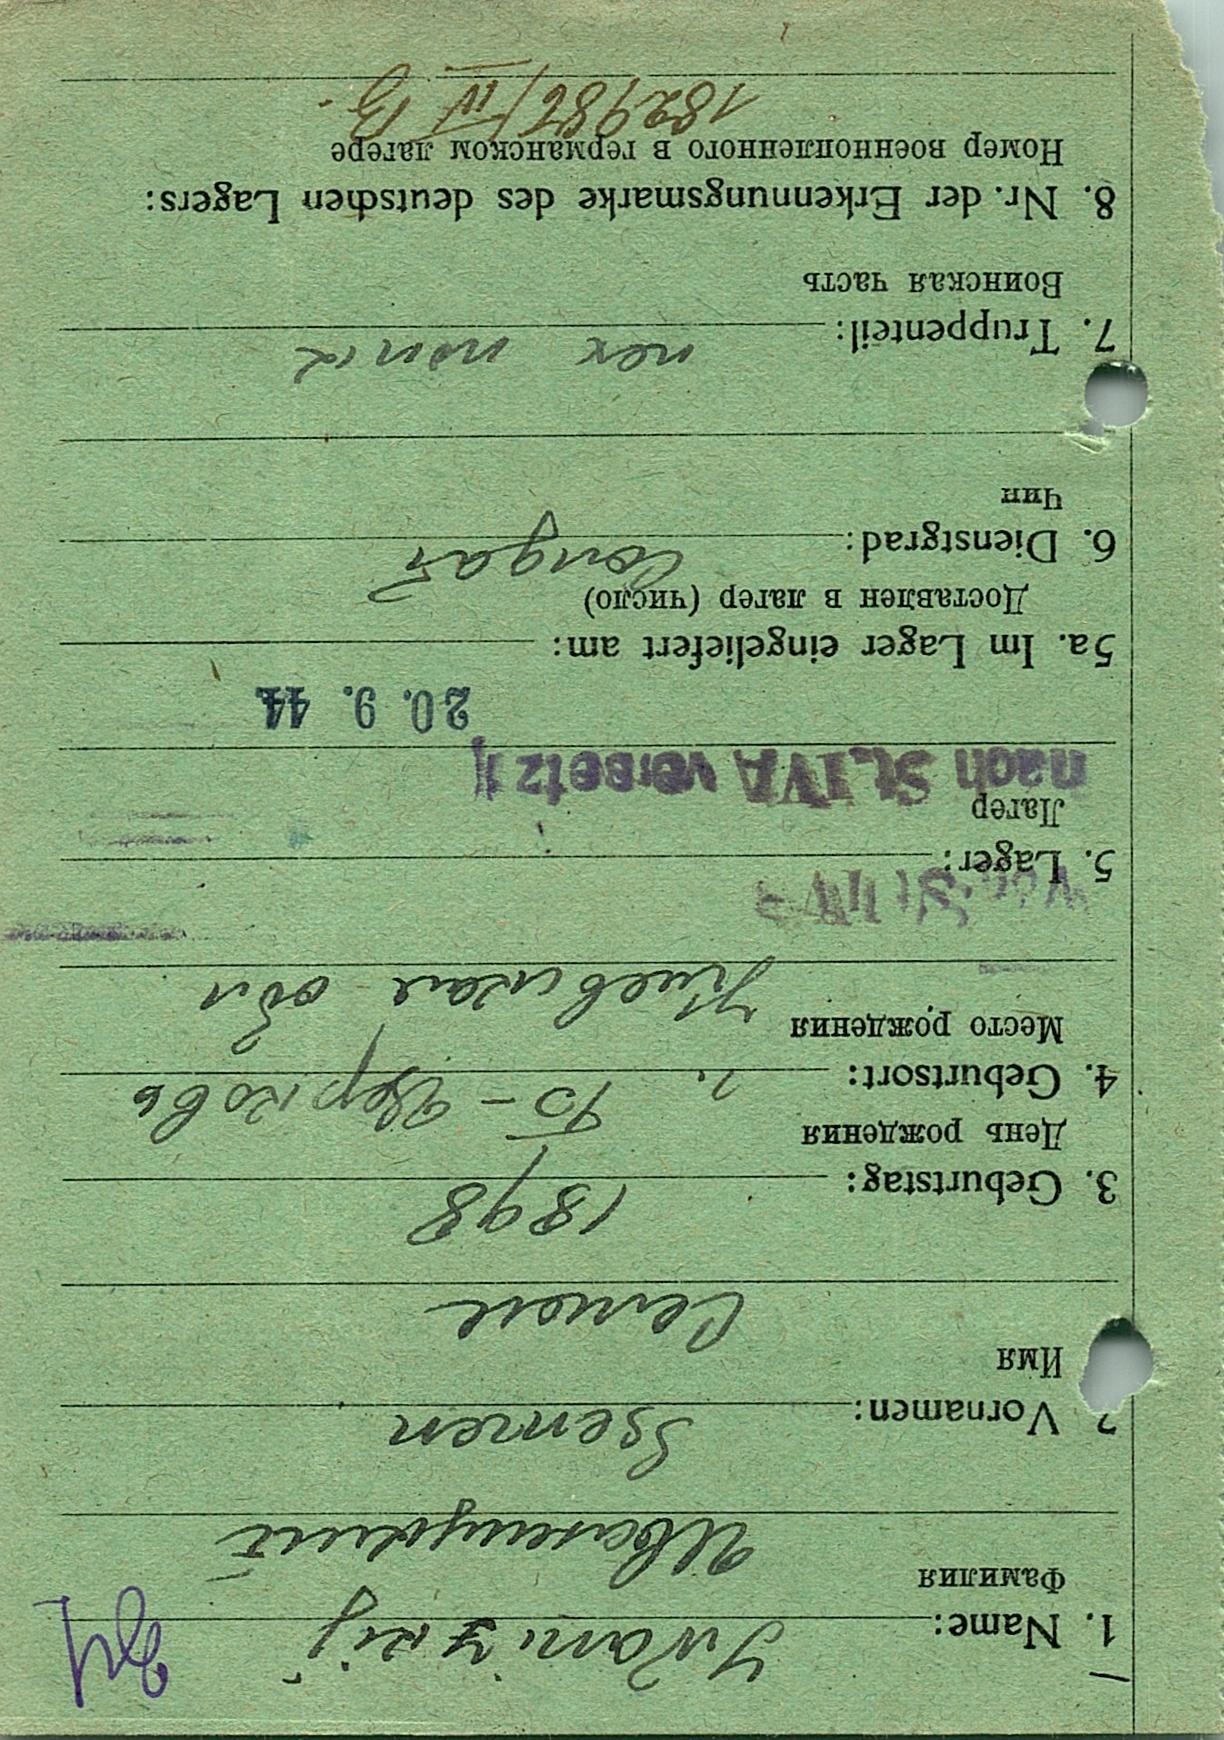 1. Name: Iwanizkij
Фамилия
Иваницкий
2 Vornamen: Ssemen
Имя
Семен
3. Geburtstag: 1898
День рождения
4. Geburtsort: г. Б-Церковь
Место рождения
Киевская обл
5. Lager: von St IV B
Лагер
nach St. IVA versetzt
20. 9. 44
5a. Im Lager eingeliefert am:
Доставлен в лагер (число)
6. Dienstgrad: Солдат
Чин
7. Truppenteil:
Воинская часть
8. Nr. der Erkennungsmarke des deutschen Lagers:
Номер военнопленного в германском лагере
182986/IV B.